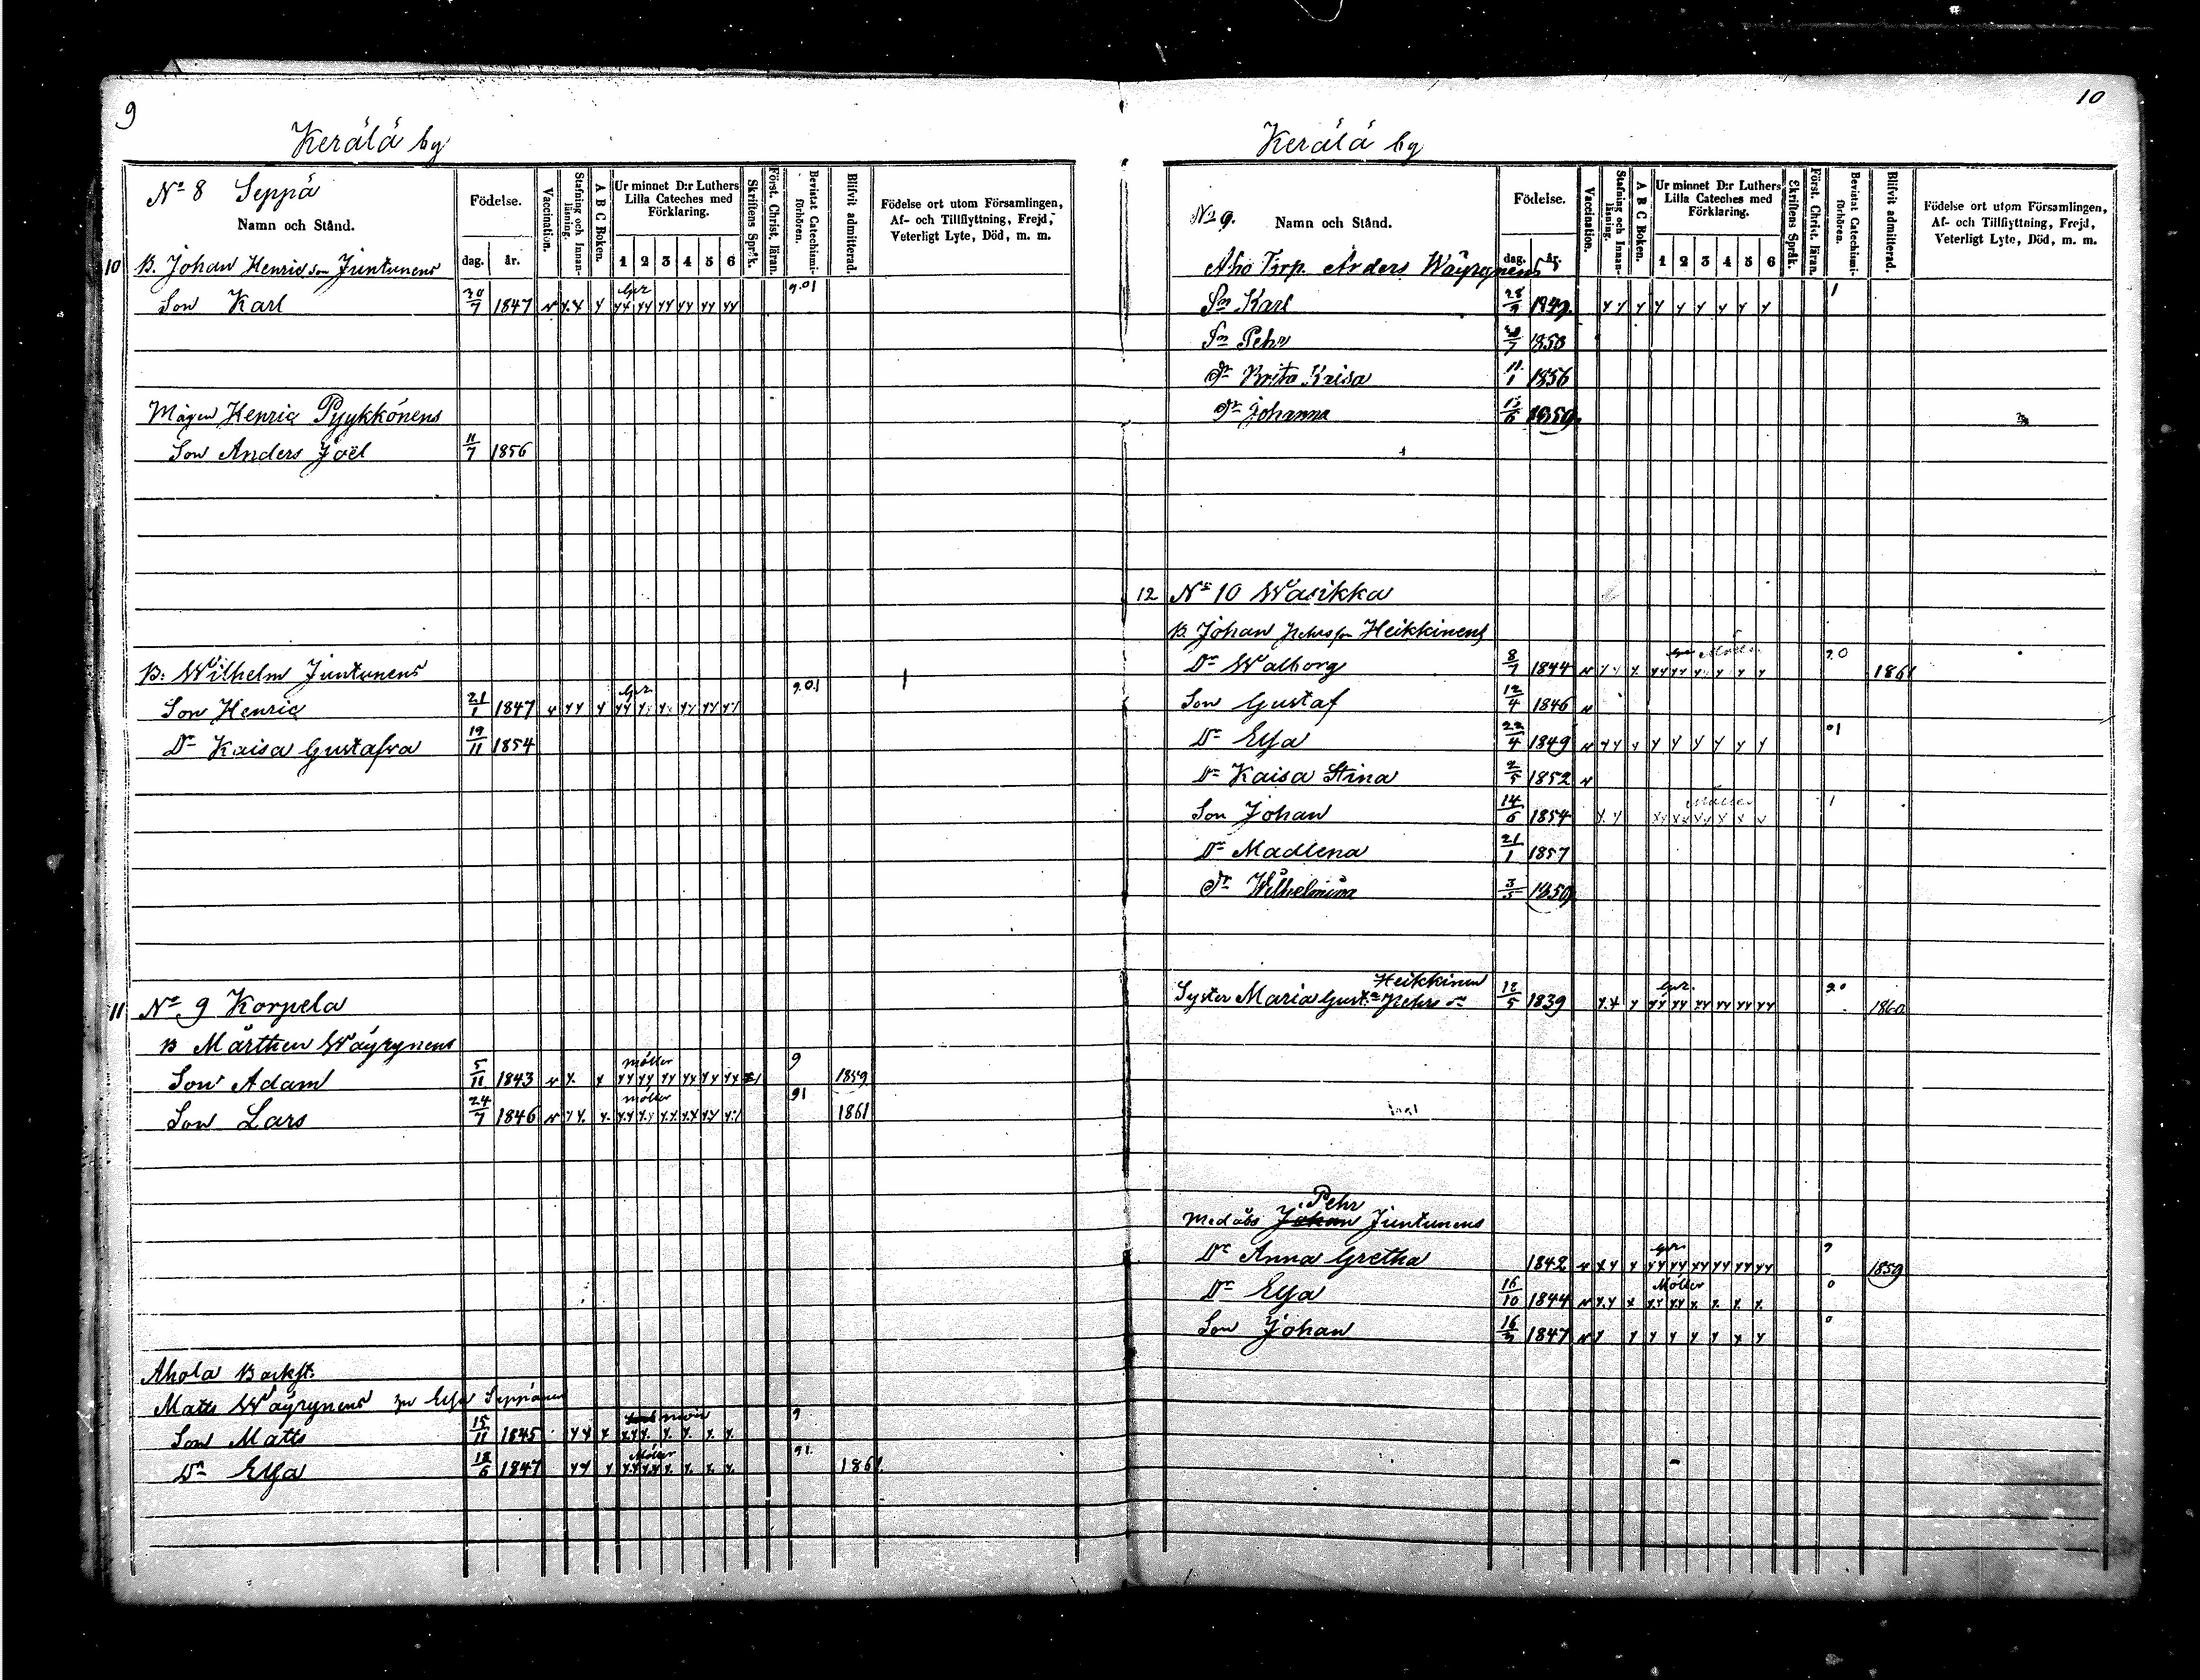 9
Kerälä by
No 8 Seppä
Namn och Stånd.
Födelse.
dag.
år.
Vaccination.
Stafning och Innanläsning.
A B C Boken.
Ur minnet D:r Luthers Lilla Cateches med Förklaring.
1 2 3 4 5 6
Skriftens Språk.
Först. Christ. läran.
Bevistat Catechismiförhören.
Blifvit admitterad.
Födelse ort utom Församlingen,
Af- och Tillflyttning, Frejd,
Veterligt Lyte, Död, m. m.
10 B. Johan Henricson Juntunens
Son Karl 30/7 1847 9.01
Mågen Henric Pyykkönens
Son Anders Joël 11/7 1856
B. Wilhelm Juntunens
Son Henric 21/1 1847 9.01
Dr Kaisa Gustafva 19/11 1854
11 No 9 Korpela
B Mårthen Wäyrynens
Son Adam 5/11 1843 möller 9 1859
Son Lars 24/7 1846 möller 91 1861
Ahola Backst.
Matts Wäyrynens Elsa Seppänen
Son Matts 15/11 1845 9
Dr Elsa 18/6 1847 Möller 91. 1861
10
Kerälä by
No 9.
Namn och Stånd.
Födelse.
dag.
år.
Vaccination.
Stafning och Innanläsning.
A B C Boken.
Ur minnet D:r Luthers Lilla Cateches med Förklaring.
1 2 3 4 5 6
Skriftens Språk.
Först. Christ. läran.
Bevistat Catechismiförhören.
Blifvit admitterad.
Födelse ort utom Församlingen,
Af- och Tillflyttning, Frejd,
Veterligt Lyte, Död, m. m.
Aho Torp. Anders Wäyrynens
Sn Karl 1
Sn Pehr 1853
Dr Brita Kaisa 11/1 1856
Dr Johanna 1859
12 No 10 Wasikka
B. Johan Pehrsson Heikkinens
Dr Walborg 8/7 1844 9.0 1861
Son Gustaf 12/4 1846
Dr Elsa 22/4 1849 01
Dr Kaisa Stina 2/5 1852
Son Johan 14/6 1854 Möller 1
Dr Madlena 21/1 1857
Dr Wilhelmina 3/5 1859
Heikkinen
Syster Maria Gust. Pehrs dr 12/5 1839 90 1860
Pehr
Medåbo Johan Juntunens
Dr Anna Gretha 1842 9 1859
Dr Elsa 16/10 1844 Möller 0
Son Johan 1847 0